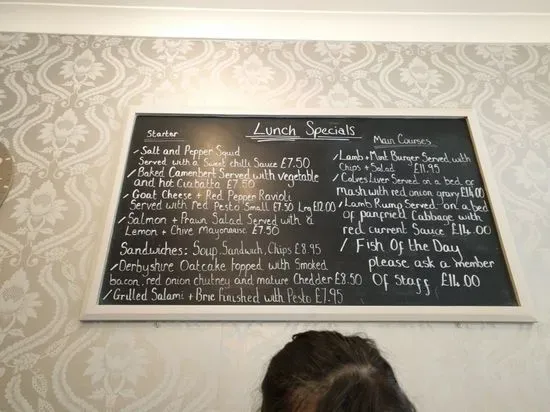 Lunch Specials
Starter
/ Salt and Pepper Squid
Served with a Sweet chilli Sauce £7.50
/ Baked Camenbert Served with vegetable
and hot Ciabatta £7.50
/ Goat Cheese + Red Pepper Ravioli
Served with Red Pesto Small £7.50 Lrg £12.00
/ Salmon + Prawn Salad Served with a
Lemon + Chive Mayonaise £7.50
Sandwiches: Soup, Sandwich, Chips £8.95
/ Derbyshire Oatcake topped with Smoked
bacon, red onion chutney and mature Chedder £8.50
/ Grilled Salami + Brie finished with Pesto £7.95
Main Courses
/ Lamb + Mint Burger Served with
Chips + Salad £11.95
/ Calves Liver Served on a bed of
Mash with red onion gravy £14.00
/ Lamb Rump Served on a bed
of panfried Cabbage with
red currant Sauce £14.00
/ Fish Of the Day
please ask a member
Of Staff £14.00